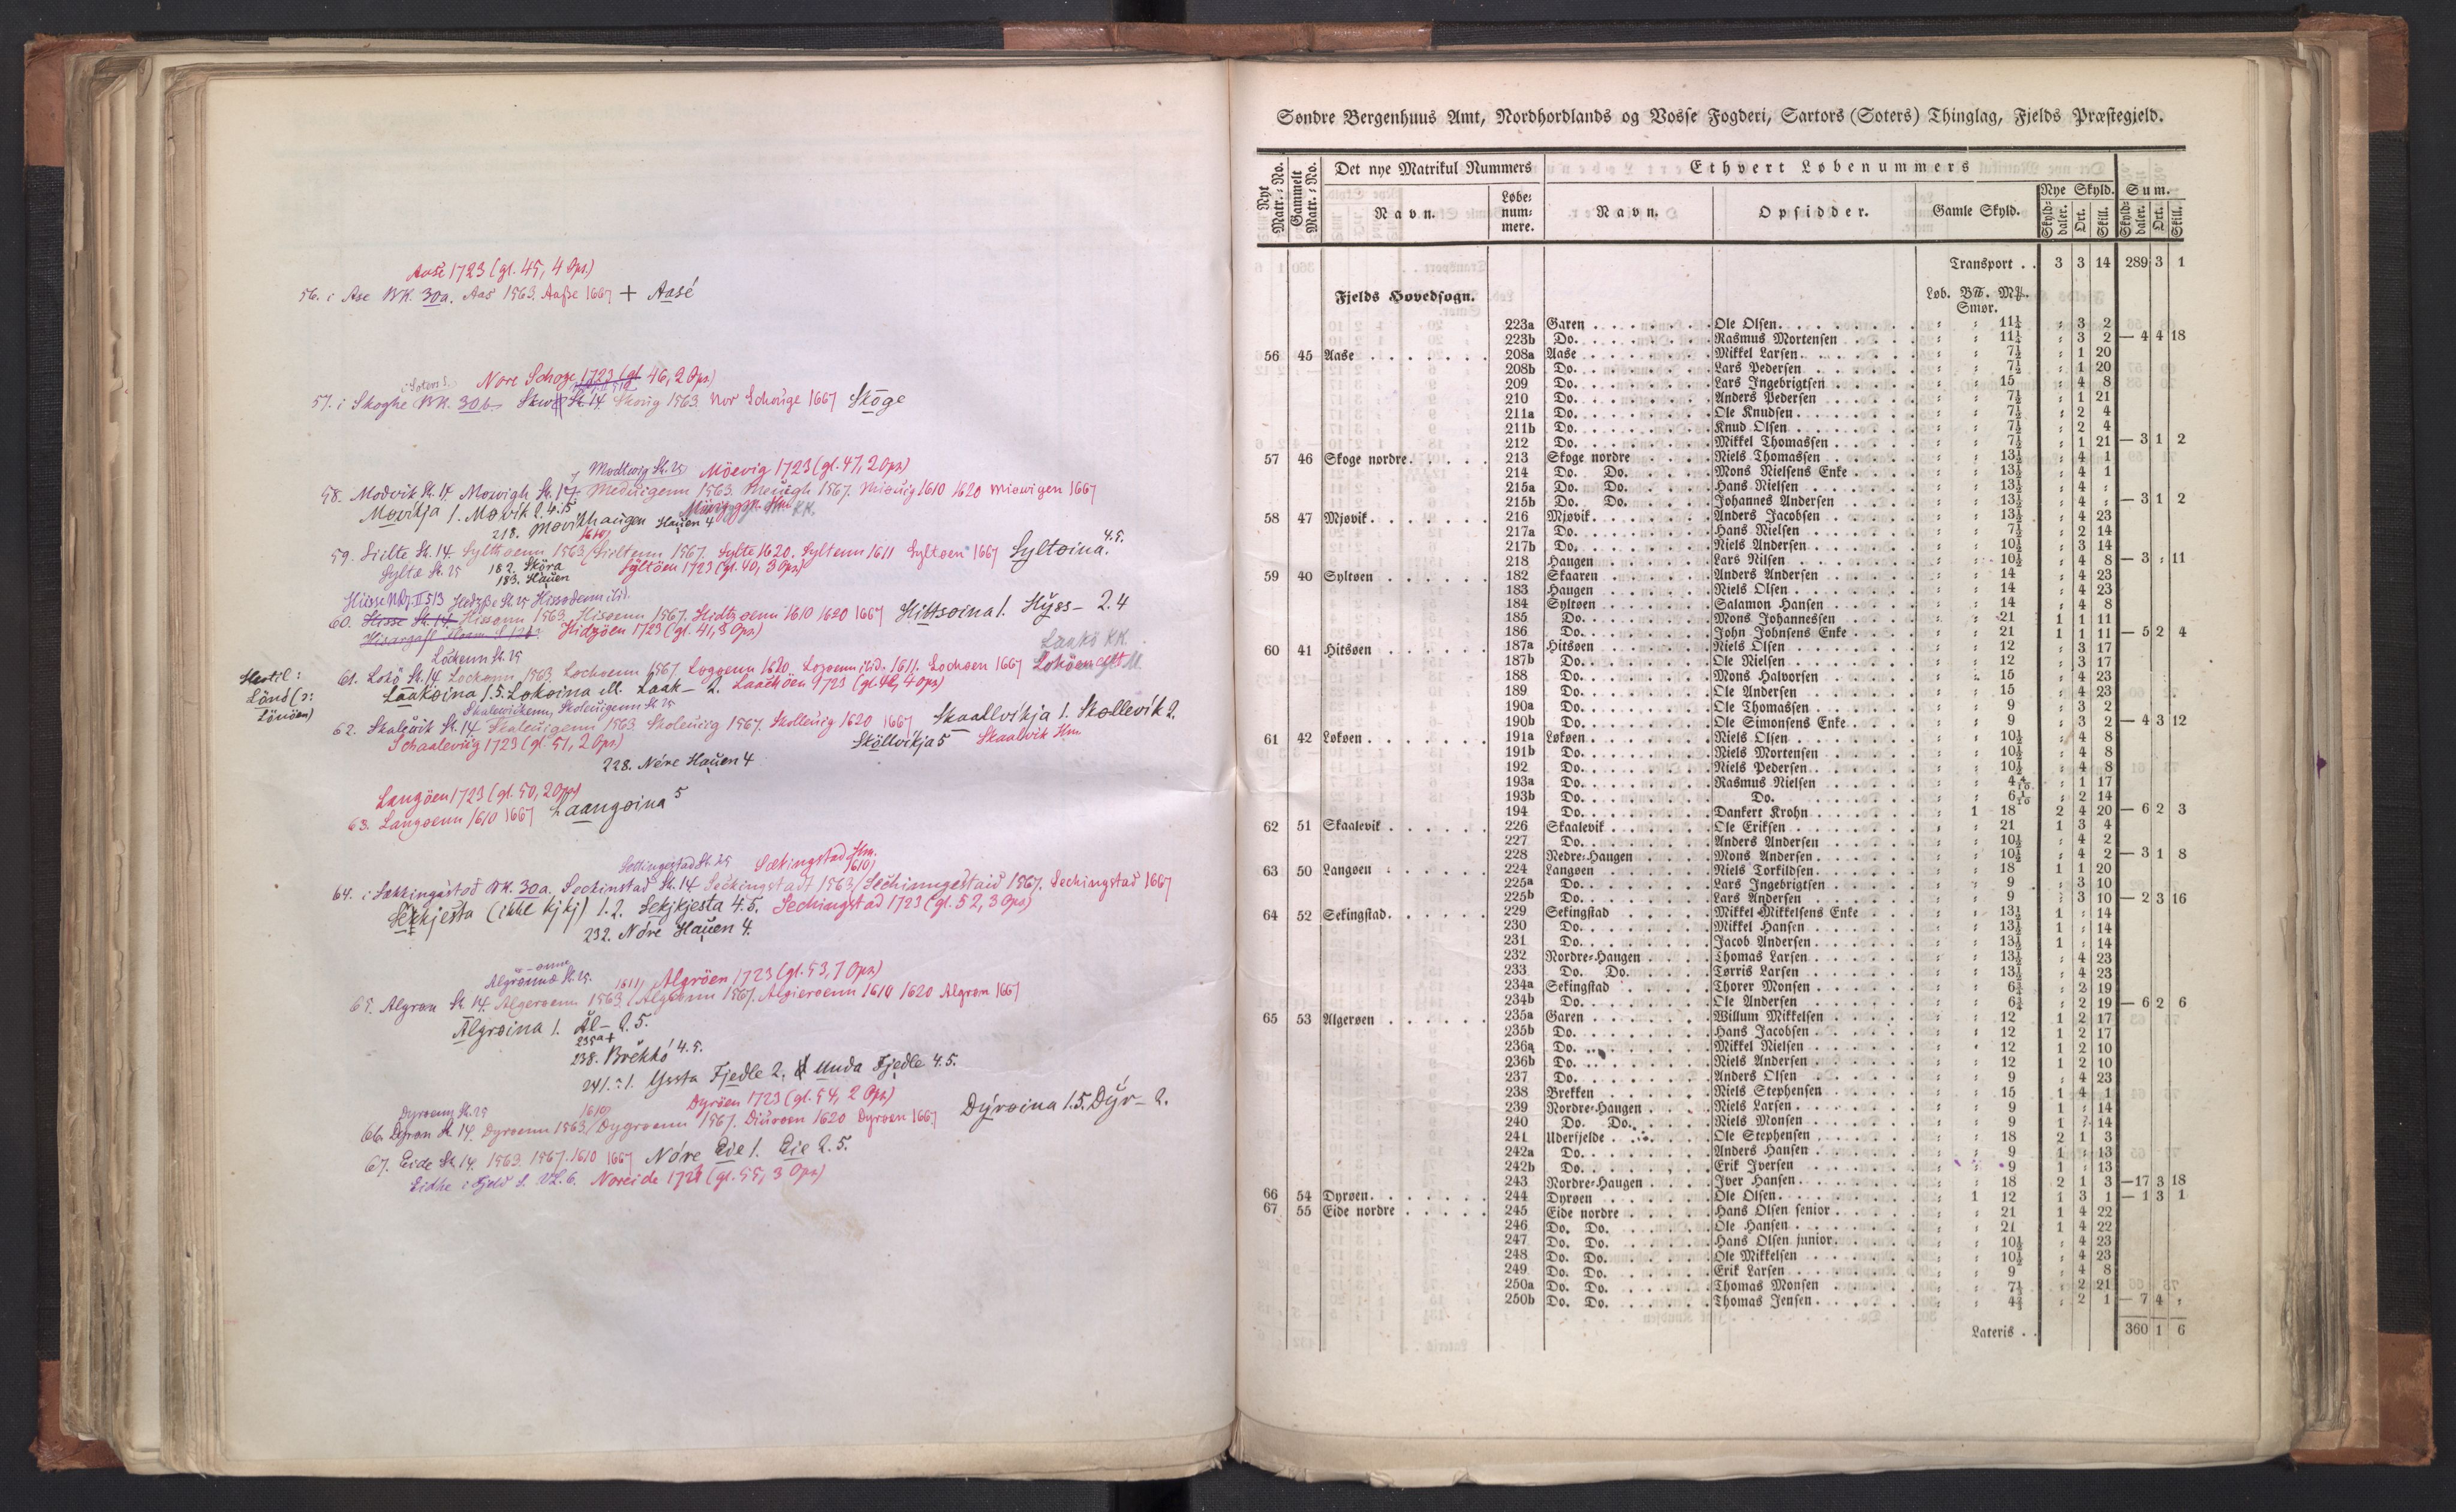 Aase 1723 (gl. 45, 4 Ops.)
56. i Ase BK. 30a. Aas 1563. Aasse 1667 + Aasé
Nore Schoge 1723 (gl. 46, 2 Ops.)
57. i Skoghe BK. 30b. St. 14. Skoug 1563. Nor Schouge 1667 Skoge
Modtwig St. 25 Möevig 1723 (gl. 47, 2 Ops.)
58. Modvik St. 14. Mowigh St. 17. Meduigenn 1563. Meuigh 1567. Miouig 1610 1620 Miowigen 1667
Movikja 1. Movik 2.4.5
218. Movikhaugen Hauen 4
59. Sielte St. 14. Sylttoenn 1563. Sieltenn 1567. Sylte 1620. Syltenn 1611 Syltoen 1667 Syltoina. 4.5.
Syltæ St. 25 182. Skōra Syltöen 1723 (gl. 40, 3 Ops)
183. Hauen
60. Hisse St. 14. Hissonn 1563. Hisoenn 1567. Hidtzoenn 1610 1620 1667 Hittsoina 1. Hyss- 2.4
Hidzöen 1723 (gl. 41, 3 Ops.)
Lockenn St. 25 Laakö KK.
61. Lokö St. 14 Lockonn 1563. Lochoenn 1567 Loggoenn 1620. Lozoenn ibid. 1611. Lochoen 1667
Laakoina 1.5. Lokoina ell. Laak- 2. Laachöen 1723 (gl. 42, 4 Ops)
Skalewickenn, Skoleuigenn St. 25
62. Skaleuik St. 14 Skaleuigenn 1563. Skoleuiig 1567. Skolleuig 1620 1667 Skaallvikja 1. Skollevik 2.
Schaaleviig 1723 (gl. 51, 2 Ops.) Sköllvikja 5 Skaalvik Hm
228. Nére Hauen 4
Langöen 1723 (gl. 50, 2 Ops)
63. Langoenn 1610 1667 Laangoina 5
Settingestad St. 25 Sækingstad Hm.
64. i Sækkingastod BK. 30a. Seckinstad St. 14 Seckingstadt 1563. Sechiamgestaid 1567. Sechingstad 1667
Sekkjesta (ikke kjkj) 1.2. Sekjkjesta 4.5. Sechingstad 1723 (gl. 52, 3 Ops)
232. Nōre Hauen 4.
Algrönnæ St. 25. 1611 Algröen 1723 (gl. 53, 7 Ops)
65. Algron St. 14. Algeroenn 1563. Algroenn 1567. Algieroenn 1610 1620 Algroen 1667
Ālgroina 1. Āl- 2.5.
235a+
238. Brekko 4.5.
241.: 1. Yssta Fjedle 2. Unda Fjedle 4.5.
Dyroenn St. 25 1610 Dyröen 1723 (gl. 54, 2 Ops)
66. Dyron St. 14. Dyroenn 1563. Dygroenn 1567. Diuroen 1620 Dyroen 1667 Dýroina 1.5. Dýr- 2.
67. Eide St. 14. 1563. 1567. 1610 1667 Nóre Eie 1. Eie 2.5.
Eidhe i Fjeld S. VL. 6. Noreide 1723 (gl. 55, 3 Ops)
Søndre Bergenhuus Amt, Nordhordlands og Vosse Fogderi, Sartors (Soters) Thinglag, Fjelds Præstegjeld.
Nyt Matr.-No. Gammelt Matr.-No. Det nye Matrikul Nummers Ethvert Løbenummers
Navn. Løbenummere. Navn. Opsidder. Gamle Skyld. Nye Skyld. Sum.
Skylddaler. Ort. Skill. Skylddaler. Ort. Skill.
Transport . . 3 3 14 289 3 1
Fjelds Hovedsogn. Løb. B℔. M℔. Smør.
223a Garen Ole Olsen 11¼ 3 2
223b Do. Rasmus Mortensen 11¼ 3 2 — 4 4 18
56 45 Aase 208a Aase Mikkel Larsen 7½ 1 20
208b Do. Lars Pedersen 7½ 1 20
209 Do. Lars Ingebrigtsen 15 4 8
210 Do. Anders Pedersen 7½ 1 21
211a Do. Ole Knudsen 7½ 2 4
211b Do. Knud Olsen 7½ 2 4
212 Do. Mikkel Thomassen 7½ 1 21 — 3 1 2
57 46 Skoge nordre 213 Skoge nordre Niels Thomassen 13½ 4 1
214 Do. Do. Mons Nielsens Enke 13½ 4 1
215a Do. Do. Hans Nielsen 13½ 4 :
215b Do. Do. Johannes Andersen 13½ 4 : — 3 1 2
58 47 Mjøvik 216 Mjøvik Anders Jacobsen 13½ 4 23
217a Do. Hans Nielsen 7½ 2 14
217b Do. Niels Andersen 10½ 3 14
218 Haugen Lars Nilsen 10½ 4 8 — 3 : 11
59 40 Syltøen 182 Skaaren Anders Andersen 14 4 23
183 Haugen Niels Olsen 14 4 23
184 Syltøen Salamon Hansen 14 4 8
185 Do. Mons Johannessen 21 1 1 11
186 Do. John Johnsens Enke 21 1 1 11 — 5 2 4
60 41 Hitsøen 187a Hitsøen Niels Olsen 12 3 17
187b Do. Ole Nielsen 12 3 17
188 Do. Mons Halvorsen 15 4 23
189 Do. Ole Andersen 15 4 23
190a Do. Ole Thomassen 9 3 2
190b Do. Ole Simonsens Enke 9 3 2 — 4 3 12
61 42 Løkøen 191a Løkøen Niels Olsen 10½ 4 8
191b Do. Niels Mortensen 10½ 4 8
192 Do. Niels Pedersen 10½ 4 8
193a Do. Rasmus Nielsen 4 4/10 1 17
193b Do. Do. 6 1/10 2 14
194 Do. Dankert Krohn 1 18 2 4 20 — 6 2 3
62 51 Skaalevik 226 Skaalevik Ole Eriksen 21 1 3 4
227 Do. Anders Andersen 10½ 4 2
228 Nedre-Haugen Mons Andersen 10½ 4 2 — 3 1 8
63 50 Langøen 224 Langøen Niels Torkildsen 18 1 1 20
225a Do. Lars Ingebrigtsen 9 3 10
225b Do. Lars Andersen 9 3 10 — 2 3 16
64 52 Sekingstad 229 Sekingstad Mikkel Mikkelsens Enke 13½ 1 : 14
230 Do. Mikkel Hansen 13½ 1 : 14
231 Do. Jacob Andersen 13½ 1 : 14
232 Nordre-Haugen Thomas Larsen 13½ 4 23
233 Do. Do. Tørris Larsen 13½ 4 23
234a Sekingstad Thorer Monsen 6¾ 2 19
234b Do. Ole Andersen 6¾ 2 19 — 6 2 6
65 53 Algerøen 235a Garen Willum Mikkelsen 12 1 2 17
235b Do. Hans Jacobsen 12 1 2 17
236a Do. Mikkel Nielsen 12 1 2 10
236b Do. Niels Andersen 12 1 2 10
237 Do. Anders Olsen 9 4 23
238 Brekken Niels Stephensen 15 1 4 1
239 Nordre-Haugen Niels Larsen 9 1 : 14
240 Do. Do. Niels Monsen 9 1 : 14
241 Uderfjelde Ole Stephensen 18 2 1 3
242a Do. Anders Hansen 9 1 : 13
242b Do. Erik Iversen 9 1 : 13
243 Nordre-Haugen Iver Hansen 18 2 1 3 —17 3 18
66 54 Dyrøen 244 Dyrøen Ole Olsen 1 12 1 3 1 — 1 3 1
67 55 Eide nordre 245 Eide nordre Hans Olsen senior 21 1 4 22
246 Do. Do. Ole Hansen 21 1 4 22
247 Do. Do. Hans Olsen junior 10½ 4 23
248 Do. Do. Ole Mikkelsen 10½ 4 23
249 Do. Do. Erik Larsen 9 4 8
250a Do. Do. Thomas Monsen 7½ 2 21
250b Do. Do. Thomas Jensen 4⅔ 2 1 — 7 4 :
Lateris . . 360 1 6